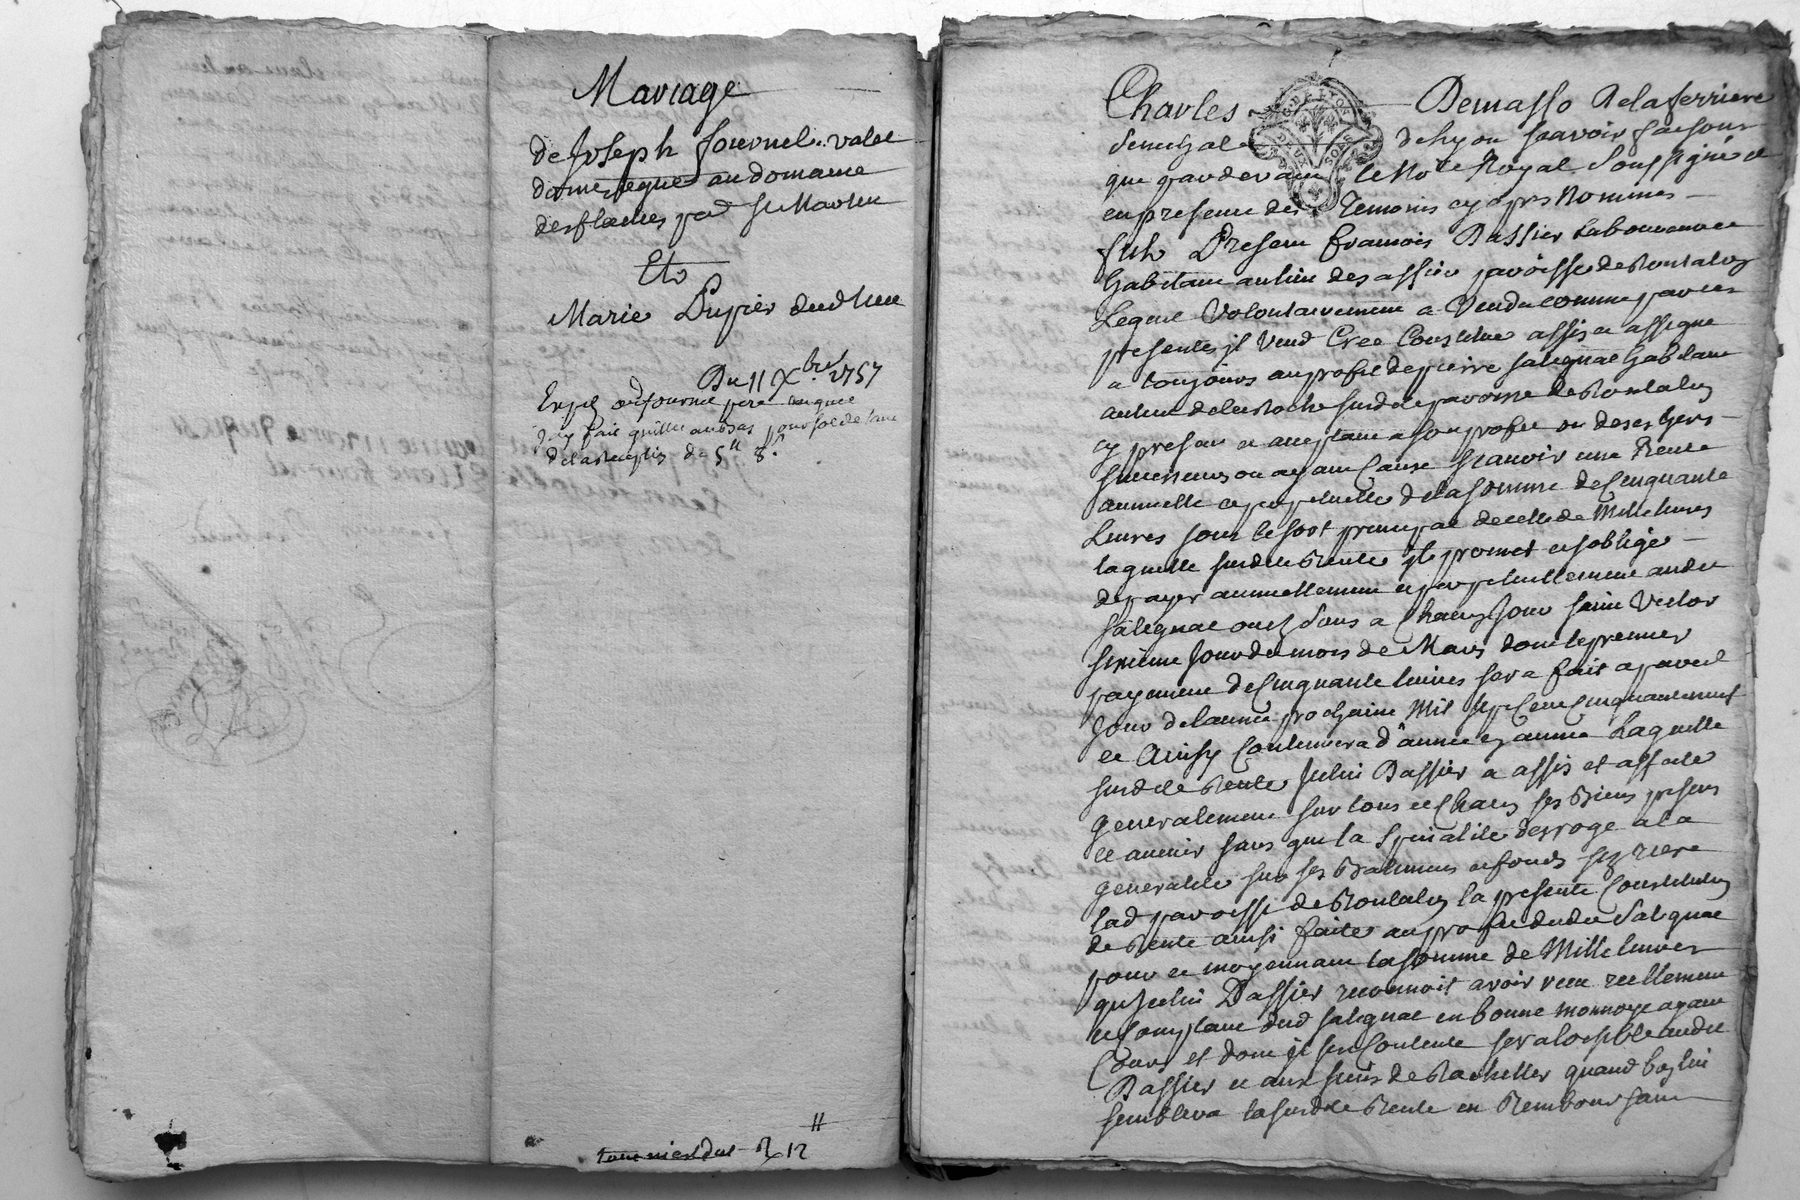 Mariage
de Joseph fournel valet
domestique au domaine
des flaches pad St Martin
Et
Marie Dupier dud lieu
Du 11 Xbre 1757
de 5ll 8s
Charles Demasso Delaferriere
Senechal de Lyon scavoir faisons
que pardevant le Nore Royal soussigné et
en presence des Temoins cy apres Nommés
fut Present francois Bassier Laboureur
habitant au lieu des assier paroisse de Rontalon
Lequel Volontairement a Vendu comme par ces
presentes il Vend Cree Constitue assis et assigne
a toujours au profit de pierre salignat habitant
au lieu de la Roche susditte paroisse de Rontalon
cy present et acceptant a son profit ou de ses hers
successeurs ou ayant Cause scavoir une Rente
annuelle et perpetuelle de la somme de Cinquante
Livres sous le sort principal de celle de Mille livres
laquelle susditte Rente il promet et s'oblige
de payer annuellement et perpetuellement audit
salignat ou es siens a Chacun Jour saint Victor
Jour du mois de Mars dont le premier
payement de Cinquante livres sera fait a pareil
Jour de l'année prochaine Mil sept Cent Cinquante neuf
et Ainsy Continuera d'année en année Laquelle
susditte Rente Icelui Bassier a assis et affecté
generalement sur tous et Chacun ses Biens presens
et avenir sans que la specialité desroge a la
generalité sur ses Batimens et fonds scis riere
lad paroisse de Rontalon la presente Constitution
de Rente ainsi faite au profit dudit Salignat
pour et moyennant la somme de Mille livres
qu'Icelui Bassier reconnoit avoir recu reellement
et Comptant dud salignat en bonne monnoye ayant
Cours et dont il se Contente sera loisible audit
Bassier et aux siens de Rachetter quand bon lui
semblera la susditte Rente en Remboursant